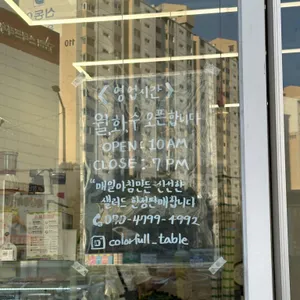 <영업시간>
월화수 오픈합니다
OPEN : 10AM
CLOSE : 7 PM
"매일아침만드는 신선한
샐러드 한정판매합니다"
070-4799-4992
colorfull_table